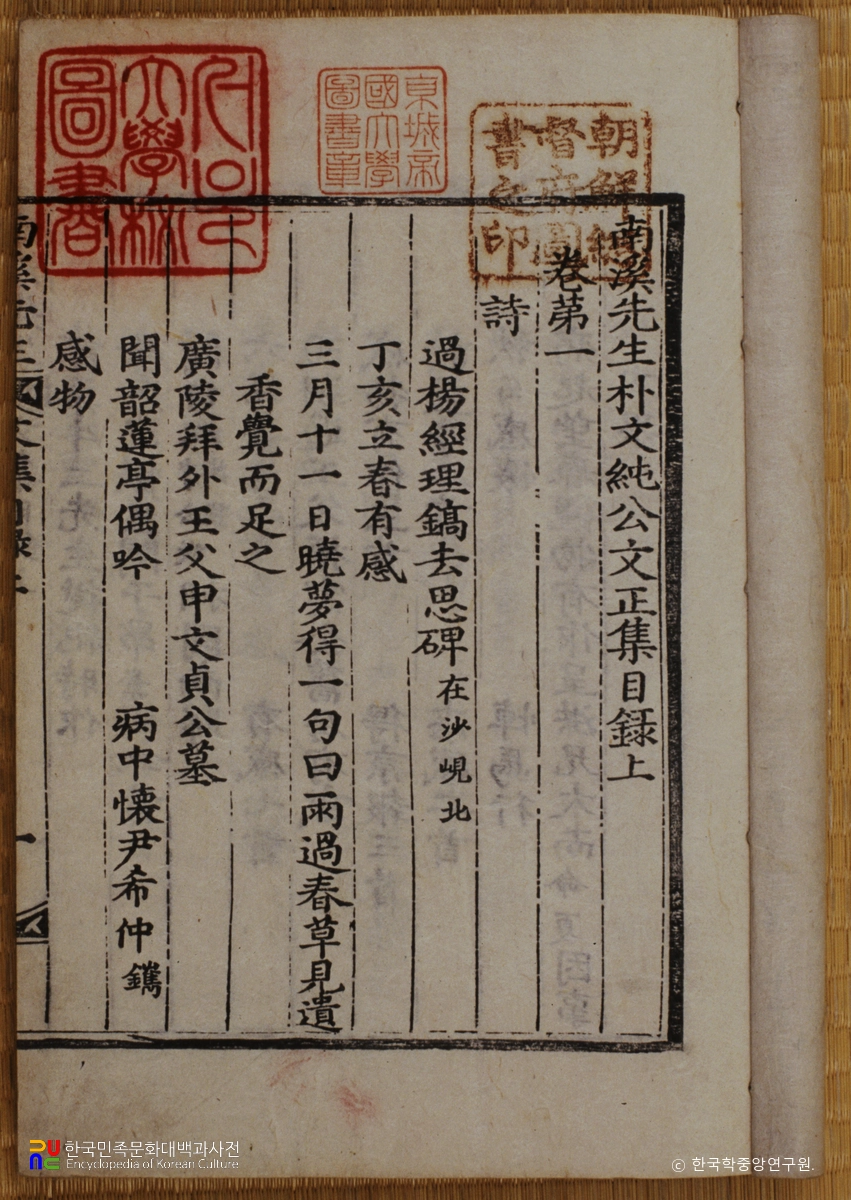 南溪先生朴文純公文正集目録上
卷第一
詩
過楊經理鎬去思碑 在沙峴北
丁亥立春有感
三月十一日曉夢得一句曰雨過春草見遺
香覺而足之
廣陵拜外王父申文貞公墓
聞韶蓮亭偶吟 病中懷尹希仲鑴
感物
朝鮮總
督府圖
書之印
京城帝
國大學
圖書章
大學校
圖書
한국민족문화대백과사전
Encyclopedia of Korean Culture
ⓒ 한국학중앙연구원.